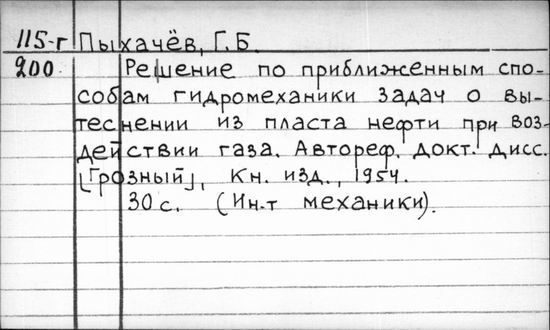 115-г Пыхачёв, Г.Б.
200 Решение по приближенным спо-
собам гидромеханики задач о вы-
теснении из пласта нефти при воз-
действии газа. Автореф. докт. дисс.
[Грозный], Кн. изд., 1954.
30 с. (Ин-т механики).